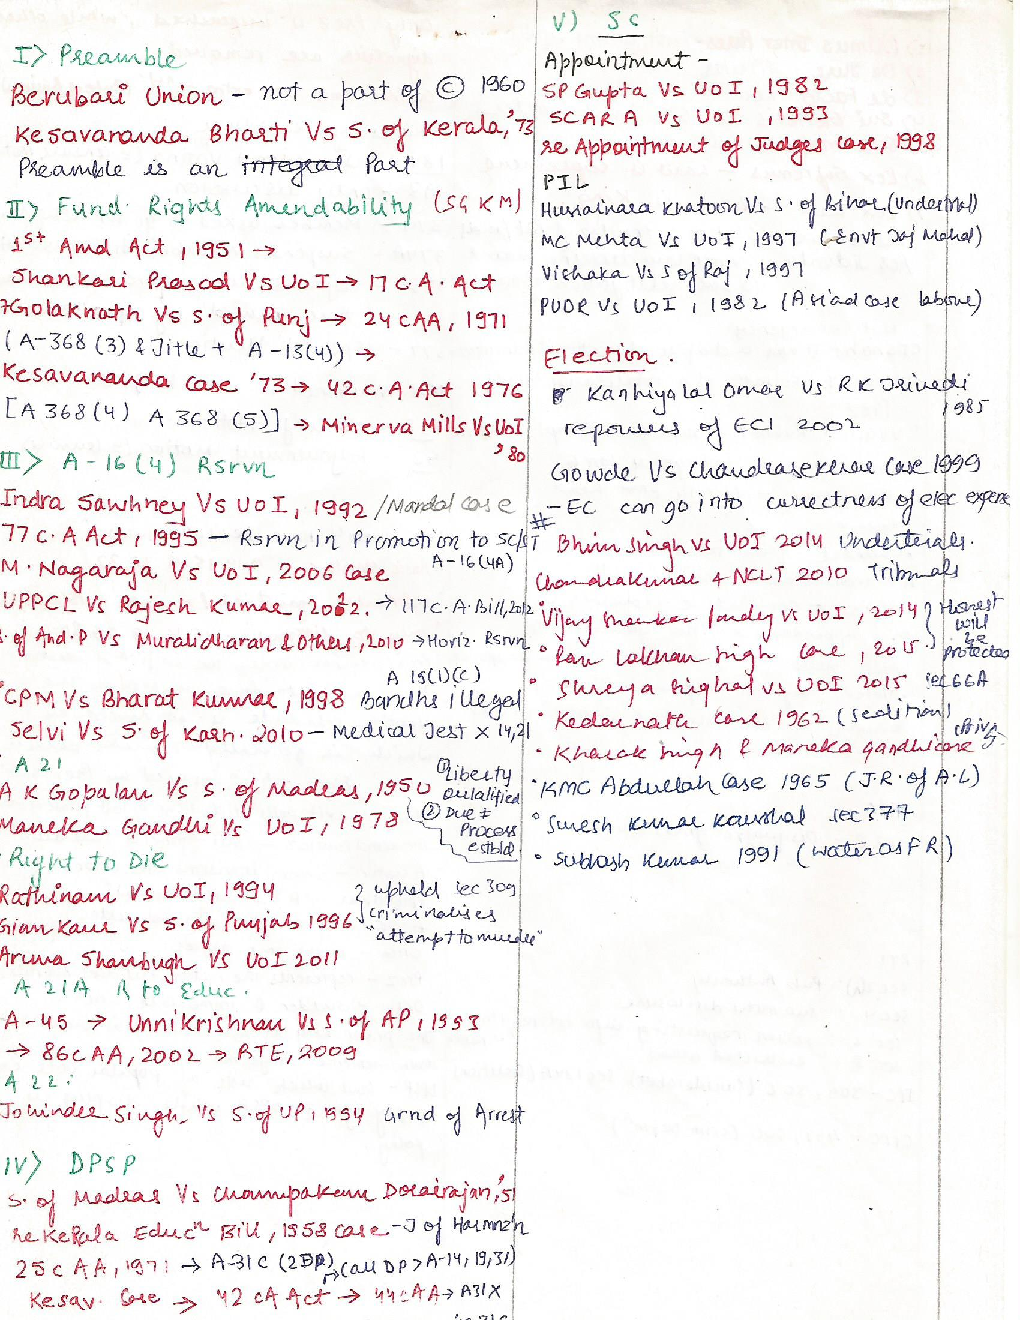 I> Preamble
Berubari Union - not a part of © 1960
Kesavananda Bharti Vs S. of Kerala, '73
Preamble is an integral Part
II> Fund. Rights Amendability (SGKM)
1st Amd Act, 1951 →
Shankari Prasad Vs UoI → 17 C.A. Act
Golaknath Vs S. of Punj → 24 CAA, 1971
(A-368 (3) & Title + A-13(4)) →
Kesavananda case '73 → 42 C.A. Act 1976
[A 368(4) A 368 (5)] → Minerva Mills Vs UoI
'80
III> A-16(4) Rsrvn
Indra Sawhney Vs UoI, 1992 /Mandal case
77 C.A Act, 1995 - Rsrvn in Promotion to SC/ST
A-16(4A)
M. Nagaraja Vs UoI, 2006 Case
UPPCL Vs Rajesh Kumar, 2012. → 117 C.A. Bill, 2012
S. of And. P Vs Muralidharan & Others, 2010 → Horiz. Rsrvn
A 19(1)(c)
CPM Vs Bharat Kumar, 1998 Bandhs illegal
Selvi Vs S. of Karn. 2010 - Medical Test x 14,21
A 21
A K Gopalan Vs S. of Madras, 1950
① liberty Qualified
② Due ≠ Process estbld
Maneka Gandhi Vs UoI, 1978
Right to Die
Rathinam Vs UoI, 1994
upheld sec 309
Gian Kaur Vs S. of Punjab 1996
criminalises
"attempt to murder"
Aruna Shanbugh Vs UoI 2011
A 21A R to Educ.
A-45 → Unnikrishnan Vs S. of AP, 1993
→ 86 CAA, 2002 → RTE, 2009
A 22:
Joginder Singh Vs S. of UP, 1994 Grnd of Arrest
IV> DPSP
S. of Madras Vs Champakam Dorairajan, '51
re Kerala Educn Bill, 1958 case - J of Harmnz'n
25 C AA, 1971 → A-31C (2DP)
→ (all DP > A-14, 19, 31)
Kesav. Case → 42 CA Act → 44 CAA → A31X
V) SC
Appointment -
SP Gupta Vs UoI, 1982
SCARA Vs UoI, 1993
re Appointment of Judges case, 1998
PIL
Hussainara Khatoon Vs S. of Bihar (Undertrial)
MC Mehta Vs UoI, 1997 (Envt Taj Mahal)
Vishaka Vs S of Raj, 1997
PUDR Vs UoI, 1982 (Asiad case labour)
Election.
Kanhiyalal Omar Vs RK Trivedi
1985
reponses of ECI 2002
Gowda Vs Chandrasekhar Case 1999
- EC can go into correctness of elec expense
# Bhim Singh vs UoI 2014 Undertrials.
Chandrakumar & NCLT 2010 Tribunals
• Vijay Shankar Pandey vs UoI, 2014
• Ram Lakhan Singh case, 2015
Honest will be protected
• Shreya Singhal vs UoI 2015 sec 66A
• Kedarnath Case 1962 (sedition)
• Kharak Singh & Maneka Gandhi case
• KMC Abdullah Case 1965 (J.R. of A.L)
• Suresh Kumar Kaushal sec 377
• Subhash Kumar 1991 (water as FR)